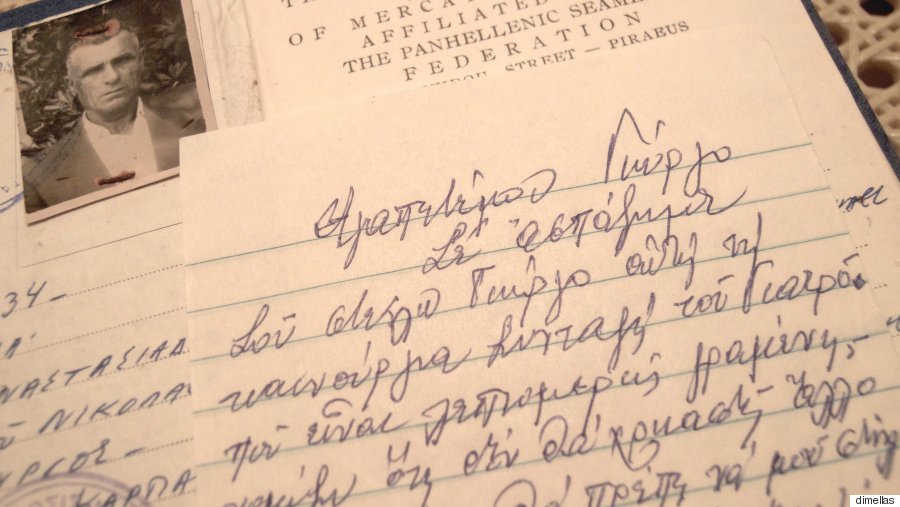 OF MERCA
AFFILIATED
THE PANHELLENIC SEAME
FEDERATION
STREET — PIRAEUS
Αγαπητέ μου Γιώργο
Σε ἀσπάζομαι
Σοῦ στέλλω Γιώργο αὐτή τη
καινούργια συνταγή τοῦ Γιατρό
ποῦ εἶναι λεπτομερῶς γραμένη,
ὅτι δέν θά χρειαστῇ ἄλλο
θά πρέπη νά μοῦ
34 —
ΝΑΣΤΑΣΙΑΔ
ΝΙΚΟΛΑ
ΚΑΡΠΑ
dimellas